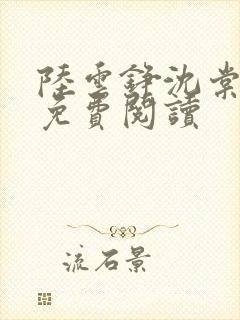 陸雲錚沈棠
免費閱讀
流石景